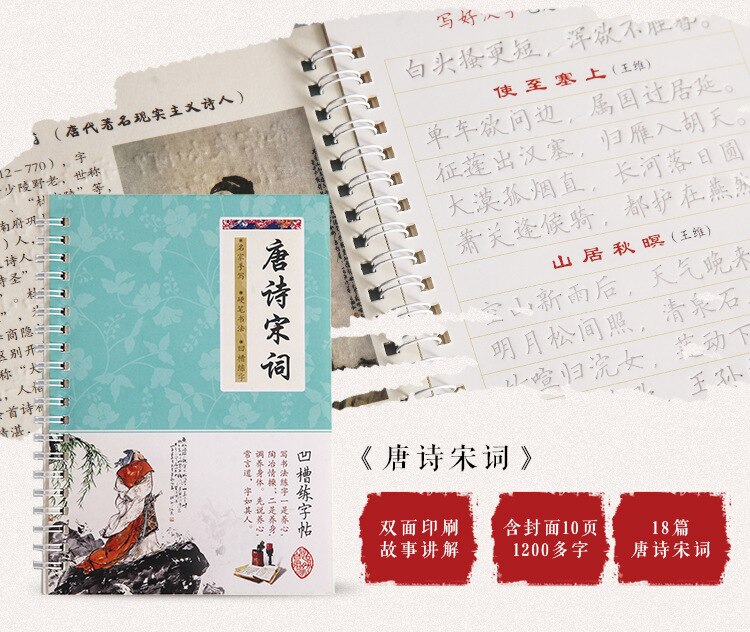 写好汉字
白头搔更短，浑欲不胜簪。
使至塞上（王维）
单车欲问边，属国过居延。
征蓬出汉塞，归雁入胡天。
大漠孤烟直，长河落日圆
萧关逢候骑，都护在燕然
山居秋暝（王维）
空山新雨后，天气晚来
明月松间照，清泉石
喧归浣女，莲动下
王孙
（唐代著名现实主义诗人）
12-770），字
少陵野老，世称
等
南府巩
诗圣”
商隐
区别开
称“大
首诗
唐诗宋词
名家手写
硬笔书法
凹槽练字
凹槽练字帖
写书法练字一是养心
陶冶情操；二是养身
调养身体。先说养心
常言道，字如其人。
《唐诗宋词》
双面印刷
故事讲解
含封面10页
1200多字
18篇
唐诗宋词